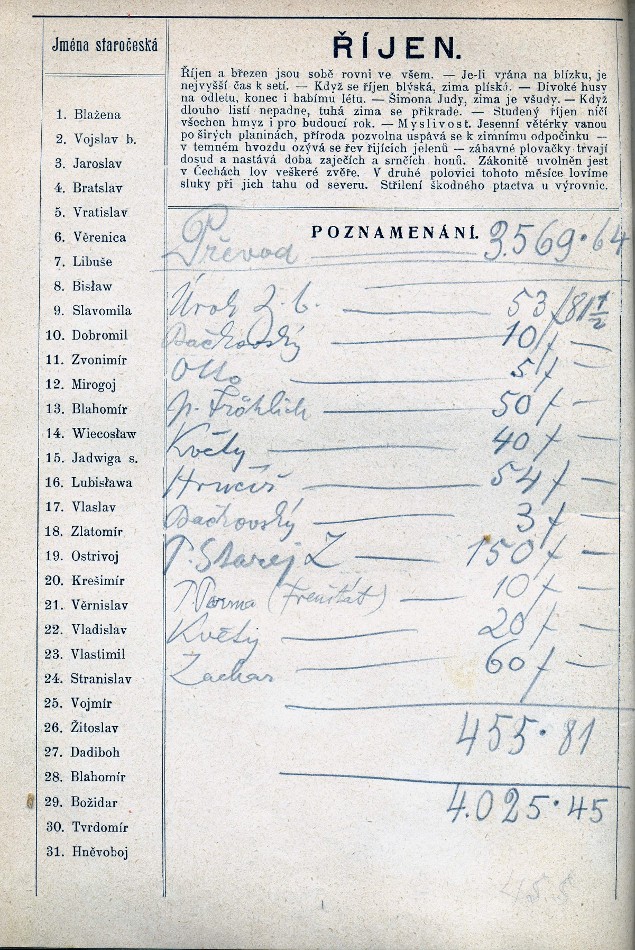 Jména staročeská
1. Blažena
2. Vojslav b.
3. Jaroslav
4. Bratslav
5. Vratislav
6. Věrenica
7. Libuše
8. Bisław
9. Slavomila
10. Dobromil
11. Zvonimír
12. Mirogoj
13. Blahomír
14. Wiecosław
15. Jadwiga s.
16. Lubisława
17. Vlaslav
18. Zlatomír
19. Ostrivoj
20. Krešimír
21. Věrnislav
22. Vladislav
23. Vlastimil
24. Stranislav
25. Vojmír
26. Žitoslav
27. Dadiboh
28. Blahomír
29. Božidar
30. Tvrdomír
31. Hněvoboj
ŘÍJEN.
Říjen a březen jsou sobě rovni ve všem. — Je-li vrána na blízku, je
nejvyšší čas k setí. — Když se říjen blýská, zima plíská. — Divoké husy
na odletu, konec i babímu létu. — Šimona Judy, zima je všudy. — Když
dlouho listí nepadne, tuhá zima se přikrade. — Studený říjen ničí
všechen hmyz i pro budoucí rok. — Myslivost. Jesenní větérky vanou
po širých planinách, příroda pozvolna uspává se k zimnímu odpočinku —
v temném hvozdu ozývá se řev říjících jelenů — zábavné plovačky trvají
dosud a nastává doba zaječích a srnčích honů. Zákonitě uvolněn jest
v Čechách lov veškeré zvěře. V druhé polovici tohoto měsíce lovíme
sluky při jich tahu od severu. Střílení škodného ptactva u výrovnic.
POZNAMENÁNÍ.
Převod 3.569·64
Úrok z. b. — 53/81 1/2
Bačkovský — 10/—
Otto — 5/—
p. Fröhlich — 50/—
Květy — 40/—
Hrnčíř — 54/—
Bačkovský — 3/—
P. Starej Z — 150/—
P. Parma (Frenštát) — 10/—
Květy — 20/—
Zachar — 60/—
455·81
4.025·45